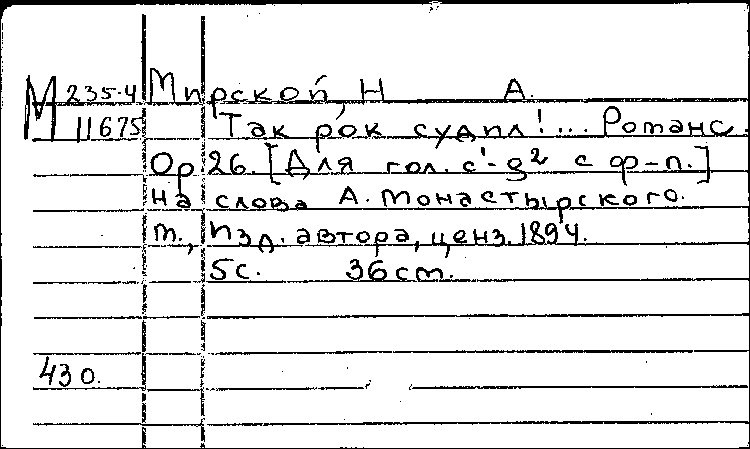 М 235-4 Мирской, Н А.
11675 Так рок судил!... Романс.
Ор 26. [Для гол. c¹-g² с ф-п.]
на слова А. Монастырского.
m., изд. автора, ценз. 1894.
5с. 36 cm.
430.